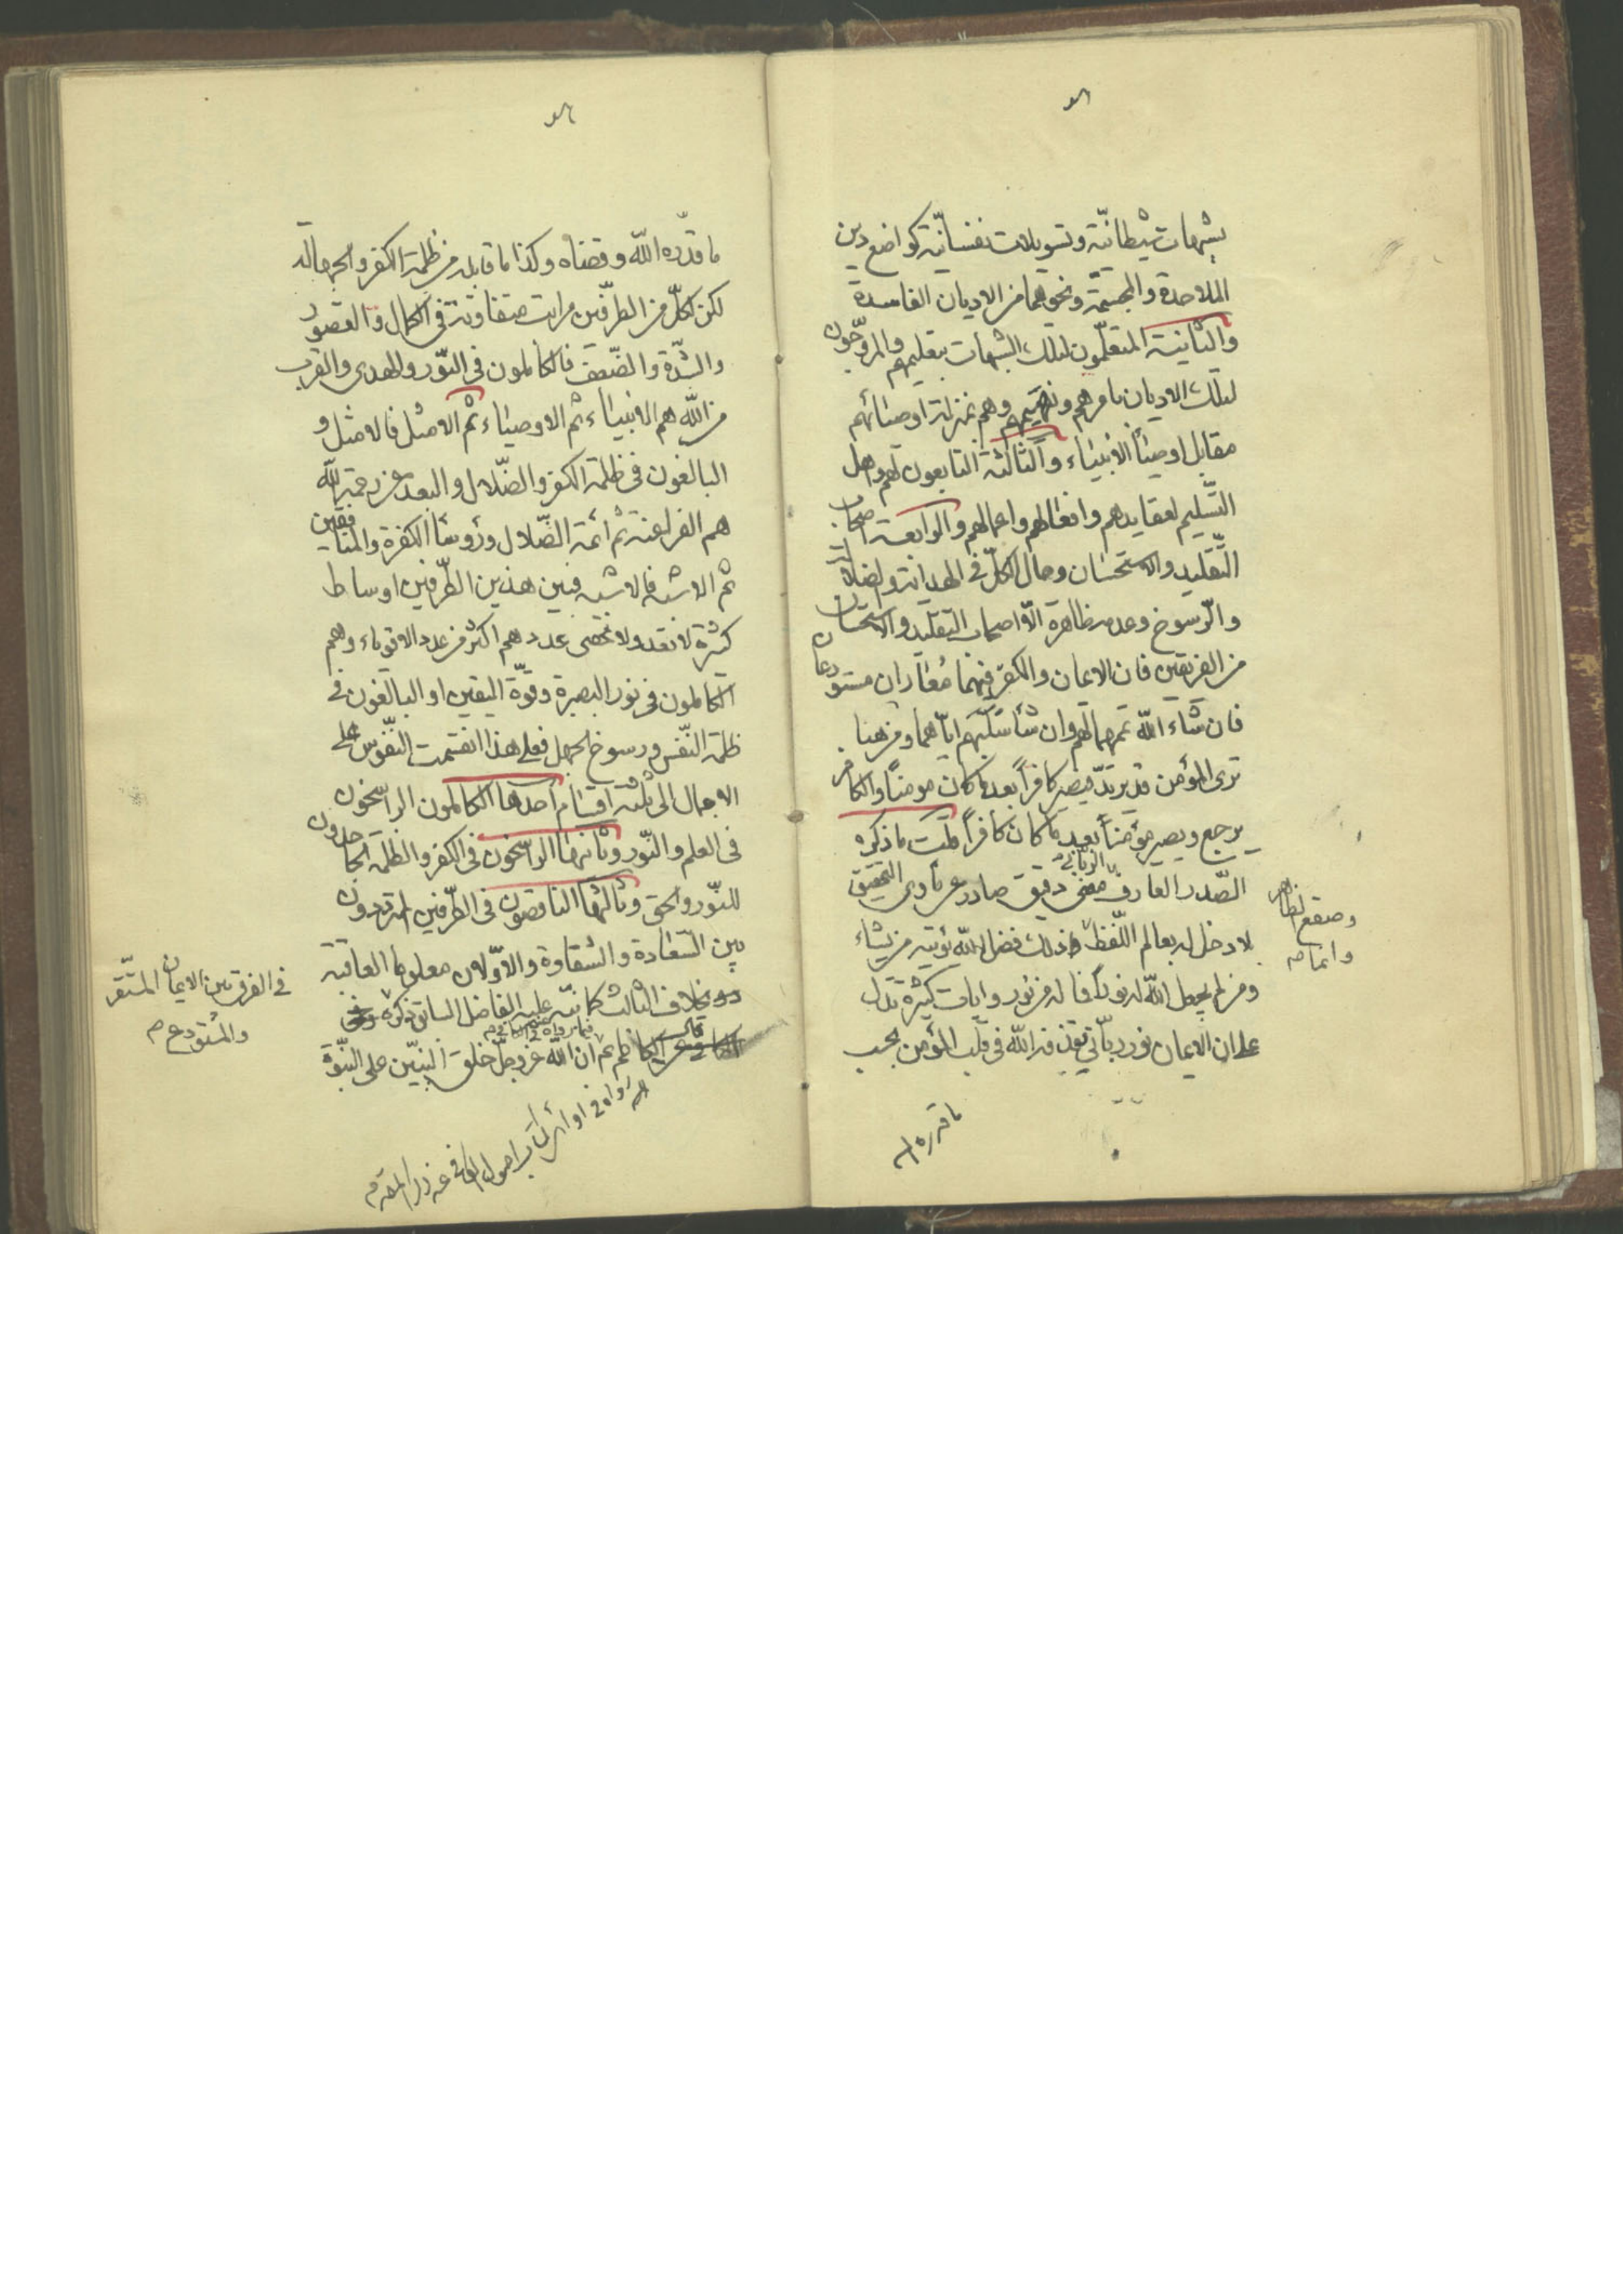 بشبهات شيطانيّة وتسويلات نفسانيّة كواضع دين
الملاحدة والمجسّمة ونحوهما من الاديان الفاسدة
والثانية المتعلّمون لتلك الشبهات بتعليمهم والمروّجون
لتلك الاديان بامرهم ونهيهم وهم بمنزلة اوصيائهم
مقابل اوصياء الانبياء والثالثة التابعون لهم واهل
التّسليم لعقايدهم وافعالهم واعمالهم والرابعة اصحاب
التّقليد والاستحسان وحال الكلّ فى الهداية والضلالة
والرّسوخ وعدمه ظاهرة الّا اصحاب التقليد والاستحسان
من الفريقين فان الايمان والكفر فيهما معاران مستودعان
فان شاء الله تمّمهما لهم وان شاء سلبهم ايّاهما ومن هنا
ترى المؤمن قد يرتدّ فيصير كافراً بعد ما كان مومناً والكافر
يرجع ويصير مؤمناً بعد ما كان كافراً قلت ما ذكره
الصّدر العارف الربانى معنى دقيق صادر عن التحقيق
لا دخل له بعالم اللّفظ ذلك فضل الله يؤتيه من يشاء
وصقع الظاهر
ومن لم يجعل الله له نوراً فما له من نور وايات كثيرة تدلّ
على ان الايمان نور ربّانّى يقذفه الله فى قلب المؤمن بحسب
ما قدره الله
ما قدّره الله وقضاه وكذا ما قابله من ظلمة الكفر والجهالة
لكن لكلّ من الطرفّين مراتب متفاوتة فى الكمال والقصور
والشّدة والضّعف فالكاملون فى النّور والهدى والقرب
من الله هم الانبياء ثم الاوصياء ثم الامثل فالامثل و
البالغون فى ظلمة الكفر والضّلال والبعد عن رحمة الله
هم الفراعنة ثم ائمة الضّلال ورؤساء الكفرة والمنافقين
ثم الاشبه فالاشبه فبين هذين الطّرفين اوساط
كثيرة لا تعد ولا تحصى عددهم اكثر من عدد الاقوياء وهم
الكاملون فى نور البصيرة وقوّة اليقين او البالغون فى
ظلمة النّفس ورسوخ الجهل فعلى هذا انقسمت النّفوس على
الاجمال الى ثلثة اقسام احدها الكاملون الراسخون
فى العلم والنّور وثانيها الراسخون فى الكفر والظلمة الجاحدون
للنّور والحق وثالثها الناقصون فى الطّرفين المتردّدون
بين السّعادة والشقاوة والاوّلان معلوما العاقبة
فى الفرق بين الايمان المستقر
والمستودع
بخلاف الثالث كما نبّه عليه الفاضل السابق ذكره
الكاظم ع ان الله عزّ وجلّ خلق النبيّين على النبّوة